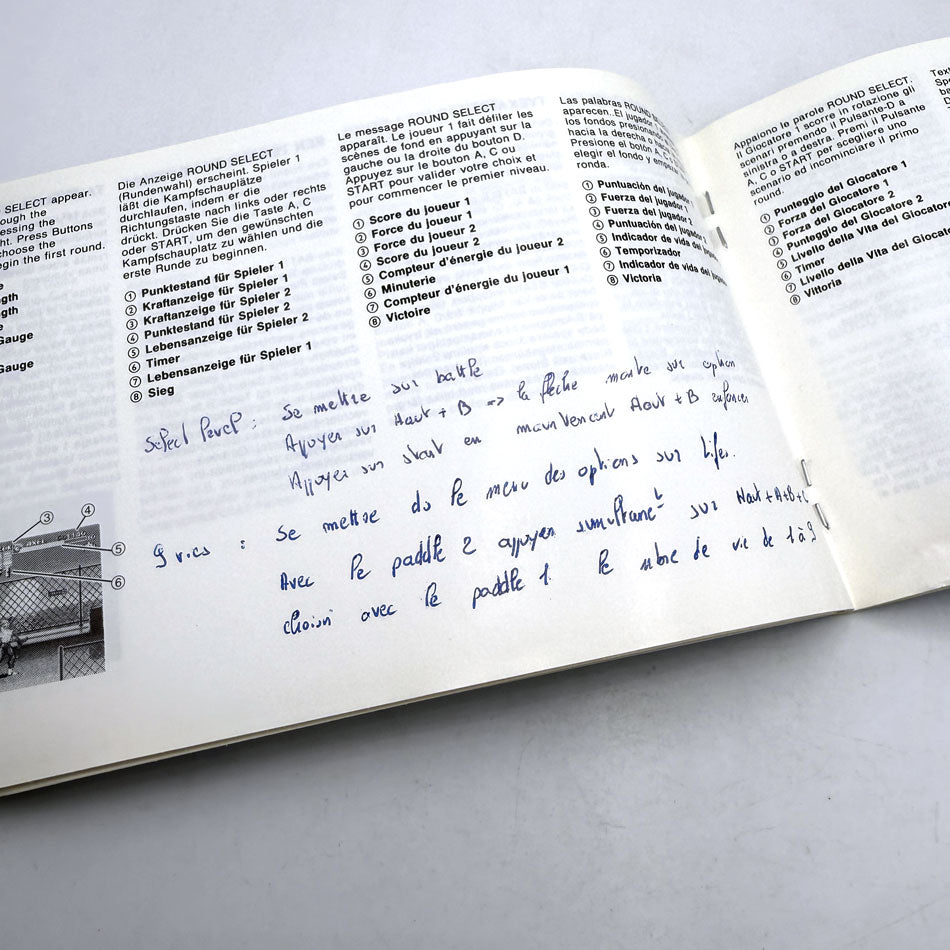 SELECT appear.
ough the
essing the
ht. Press Buttons
choose the
egin the first round.
e
ngth
ngth
e
Gauge
Gauge
Die Anzeige ROUND SELECT
(Rundenwahl) erscheint. Spieler 1
läßt die Kampfschauplätze
durchlaufen, indem er die
Richtungstaste nach links oder rechts
drückt. Drücken Sie die Taste A, C
oder START, um den gewünschten
Kampfschauplatz zu wählen und die
erste Runde zu beginnen.
① Punktestand für Spieler 1
② Kraftanzeige für Spieler 1
③ Kraftanzeige für Spieler 2
④ Punktestand für Spieler 2
⑤ Lebensanzeige für Spieler 2
⑥ Timer
⑦ Lebensanzeige für Spieler 1
⑧ Sieg
Le message ROUND SELECT
apparaît. Le joueur 1 fait défiler les
scènes de fond en appuyant sur la
gauche ou la droite du bouton D.
Appuyez sur le bouton A, C ou
START pour valider votre choix et
pour commencer le premier niveau.
① Score du joueur 1
② Force du joueur 1
③ Force du joueur 2
④ Score du joueur 2
⑤ Compteur d'énergie du joueur 2
⑥ Minuterie
⑦ Compteur d'énergie du joueur 1
⑧ Victoire
Las palabras ROUND
aparecen. El jugador
los fondos presionand
hacia la derecha o ha
Presione el botón A, C
elegir el fondo y em
ronda.
① Puntuación del jugador
② Fuerza del jugador
③ Fuerza del jugador 2
④ Puntuación del jugador
⑤ Indicador de vida del
⑥ Temporizador
⑦ Indicador de vida del
⑧ Victoria
Appaiono le parole ROUND SELECT.
Il Giocatore 1 scorre in rotazione gli
scenari premendo il Pulsante-D a
sinistra o a destra. Premi il Pulsante
A, C o START per scegliere uno
scenario ed incominciare il primo
round.
① Punteggio del Giocatore 1
② Forza del Giocatore 1
③ Forza del Giocatore 2
④ Punteggio del Giocatore 2
⑤ Livello della Vita del Giocatore
⑥ Timer
⑦ Livello della Vita del Giocato
⑧ Vittoria
Select level : Se mettre sur battle
Appuyer sur Haut + B => la flèche monte sur option
Appuyer sur start en maintenant Haut + B enfoncer
9 vies : Se mettre ds le menu des options sur Lifes.
Avec le paddle 2 appuyer simultanet sur Haut+A+B+C
choisir avec le paddle 1 le nbre de vie de 1 à 9
③ ④
⑤
⑥